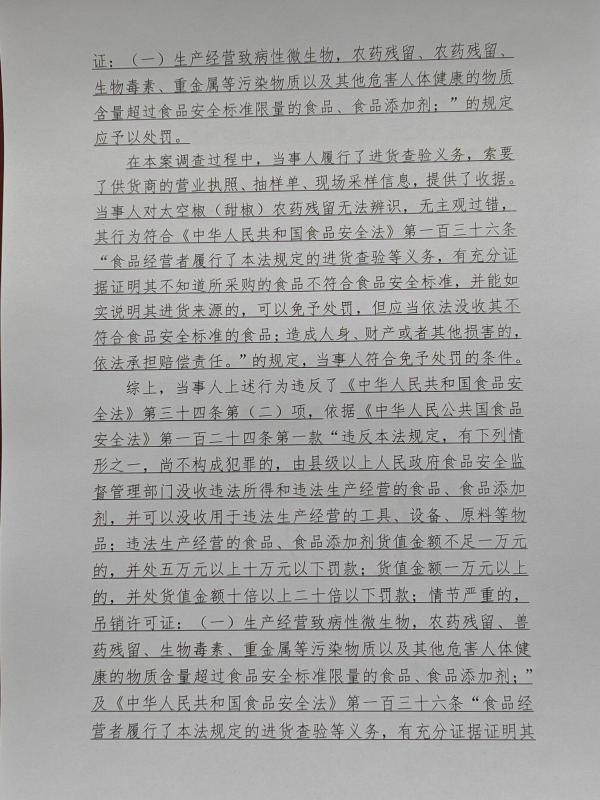 证：（一）生产经营致病性微生物，农药残留、农药残留、
生物毒素、重金属等污染物质以及其他危害人体健康的物质
含量超过食品安全标准限量的食品、食品添加剂；”的规定
应予以处罚。
在本案调查过程中，当事人履行了进货查验义务，索要
了供货商的营业执照、抽样单、现场采样信息，提供了收据。
当事人对太空椒（甜椒）农药残留无法辨识，无主观过错，
其行为符合《中华人民共和国食品安全法》第一百三十六条
“食品经营者履行了本法规定的进货查验等义务，有充分证
据证明其不知道所采购的食品不符合食品安全标准，并能如
实说明其进货来源的，可以免予处罚，但应当依法没收其不
符合食品安全标准的食品；造成人身、财产或者其他损害的，
依法承担赔偿责任。”的规定，当事人符合免予处罚的条件。
综上，当事人上述行为违反了《中华人民共和国食品安
全法》第三十四条第（二）项，依据《中华人民公共国食品
安全法》第一百二十四条第一款“违反本法规定，有下列情
形之一，尚不构成犯罪的，由县级以上人民政府食品安全监
督管理部门没收违法所得和违法生产经营的食品、食品添加
剂，并可以没收用于违法生产经营的工具、设备、原料等物
品；违法生产经营的食品、食品添加剂货值金额不足一万元
的，并处五万元以上十万元以下罚款；货值金额一万元以上
的，并处货值金额十倍以上二十倍以下罚款；情节严重的，
吊销许可证：（一）生产经营致病性微生物，农药残留、兽
药残留、生物毒素、重金属等污染物质以及其他危害人体健
康的物质含量超过食品安全标准限量的食品、食品添加剂；”
及《中华人民共和国食品安全法》第一百三十六条“食品经
营者履行了本法规定的进货查验等义务，有充分证据证明其